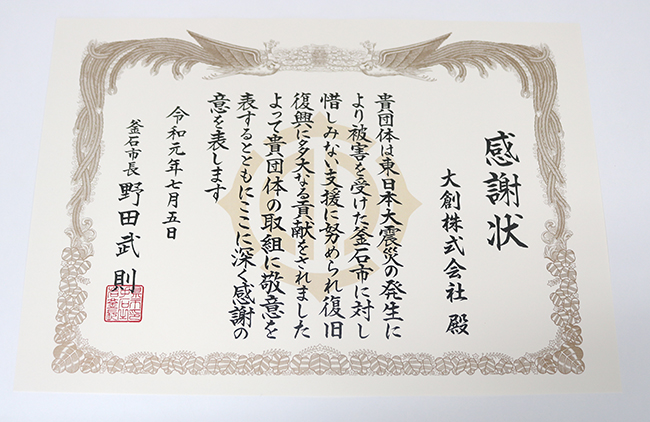 感謝状
大創株式会社 殿
貴団体は東日本大震災の発生に
より被害を受けた釜石市に対し
惜しみない支援に努められ復旧
復興に多大なる貢献をされました
よって貴団体の取組に敬意を
表するとともにここに深く感謝の
意を表します
令和元年七月五日
釜石市長 野田武則